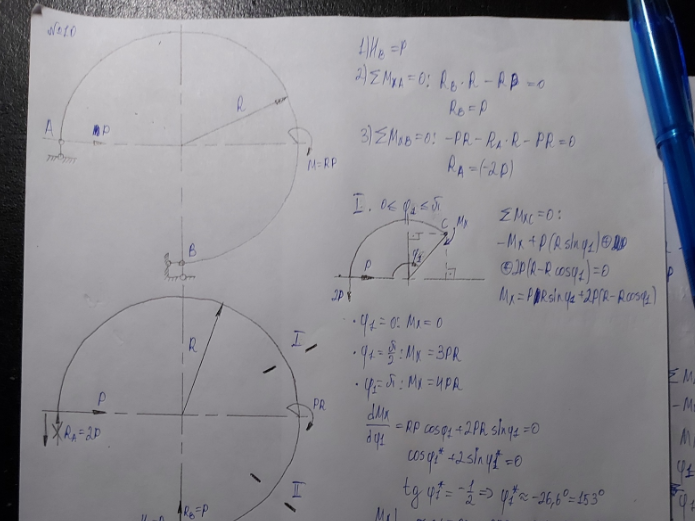 №10
A
P
R
M=RP
B
1) H_B = P
2) ΣM_XA=0: R_B·R − RP=0
R_B=P
3) ΣM_XB=0: −PR−R_A·R−PR=0
R_A=(−2P)
I. 0≤φ₁≤π
C
Mx
φ₁
P
2P
ΣM_XC=0:
−Mx+P(R sinφ₁)⊕
⊕2P(R−Rcosφ₁)=0
Mx=PR sinφ₁+2P(R−Rcosφ₁)
· φ₁=0: Mx=0
· φ₁=π/2: Mx=3PR
· φ₁=π: Mx=4PR
dMx/dφ₁=RP cosφ₁+2PR sinφ₁=0
cosφ₁*+2sinφ₁*=0
tg φ₁*=−1/2 => φ₁*≈−26,6°=153°
R
I
P
PR
R_A=2P
II
R_B=P